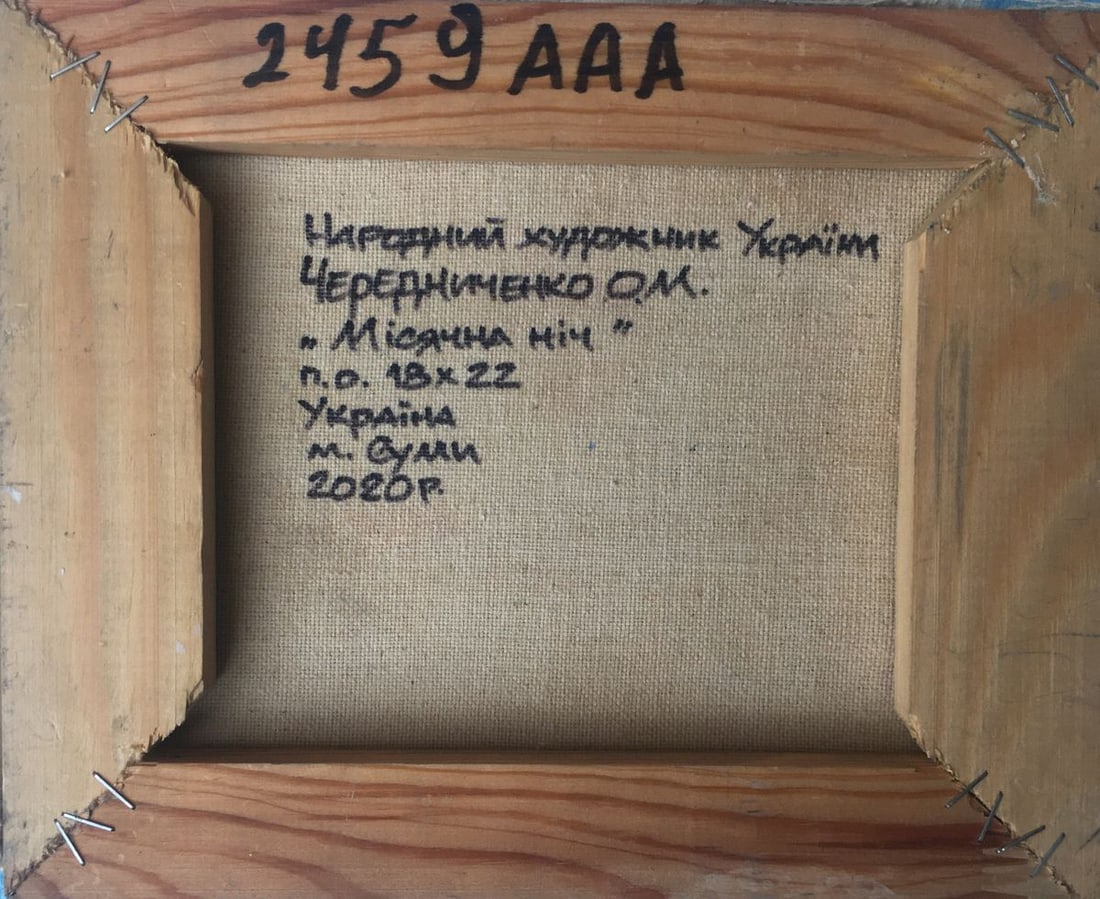 2459 ААА
Народний художник України
Чередниченко О.М.
„ Місячна ніч "
п.о. 18х22
Україна
м. Суми
2020р.